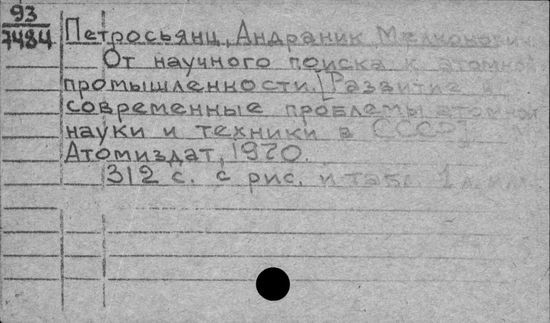 93
7484
Петросьянц, Андраник Мелконович.
От научного поиска к атомной
промышленности. [Развитие и
современные проблемы атомной
науки и техники в СССР].
Атомиздат, 1970.
312 с. с рис. и табл. 1 л.